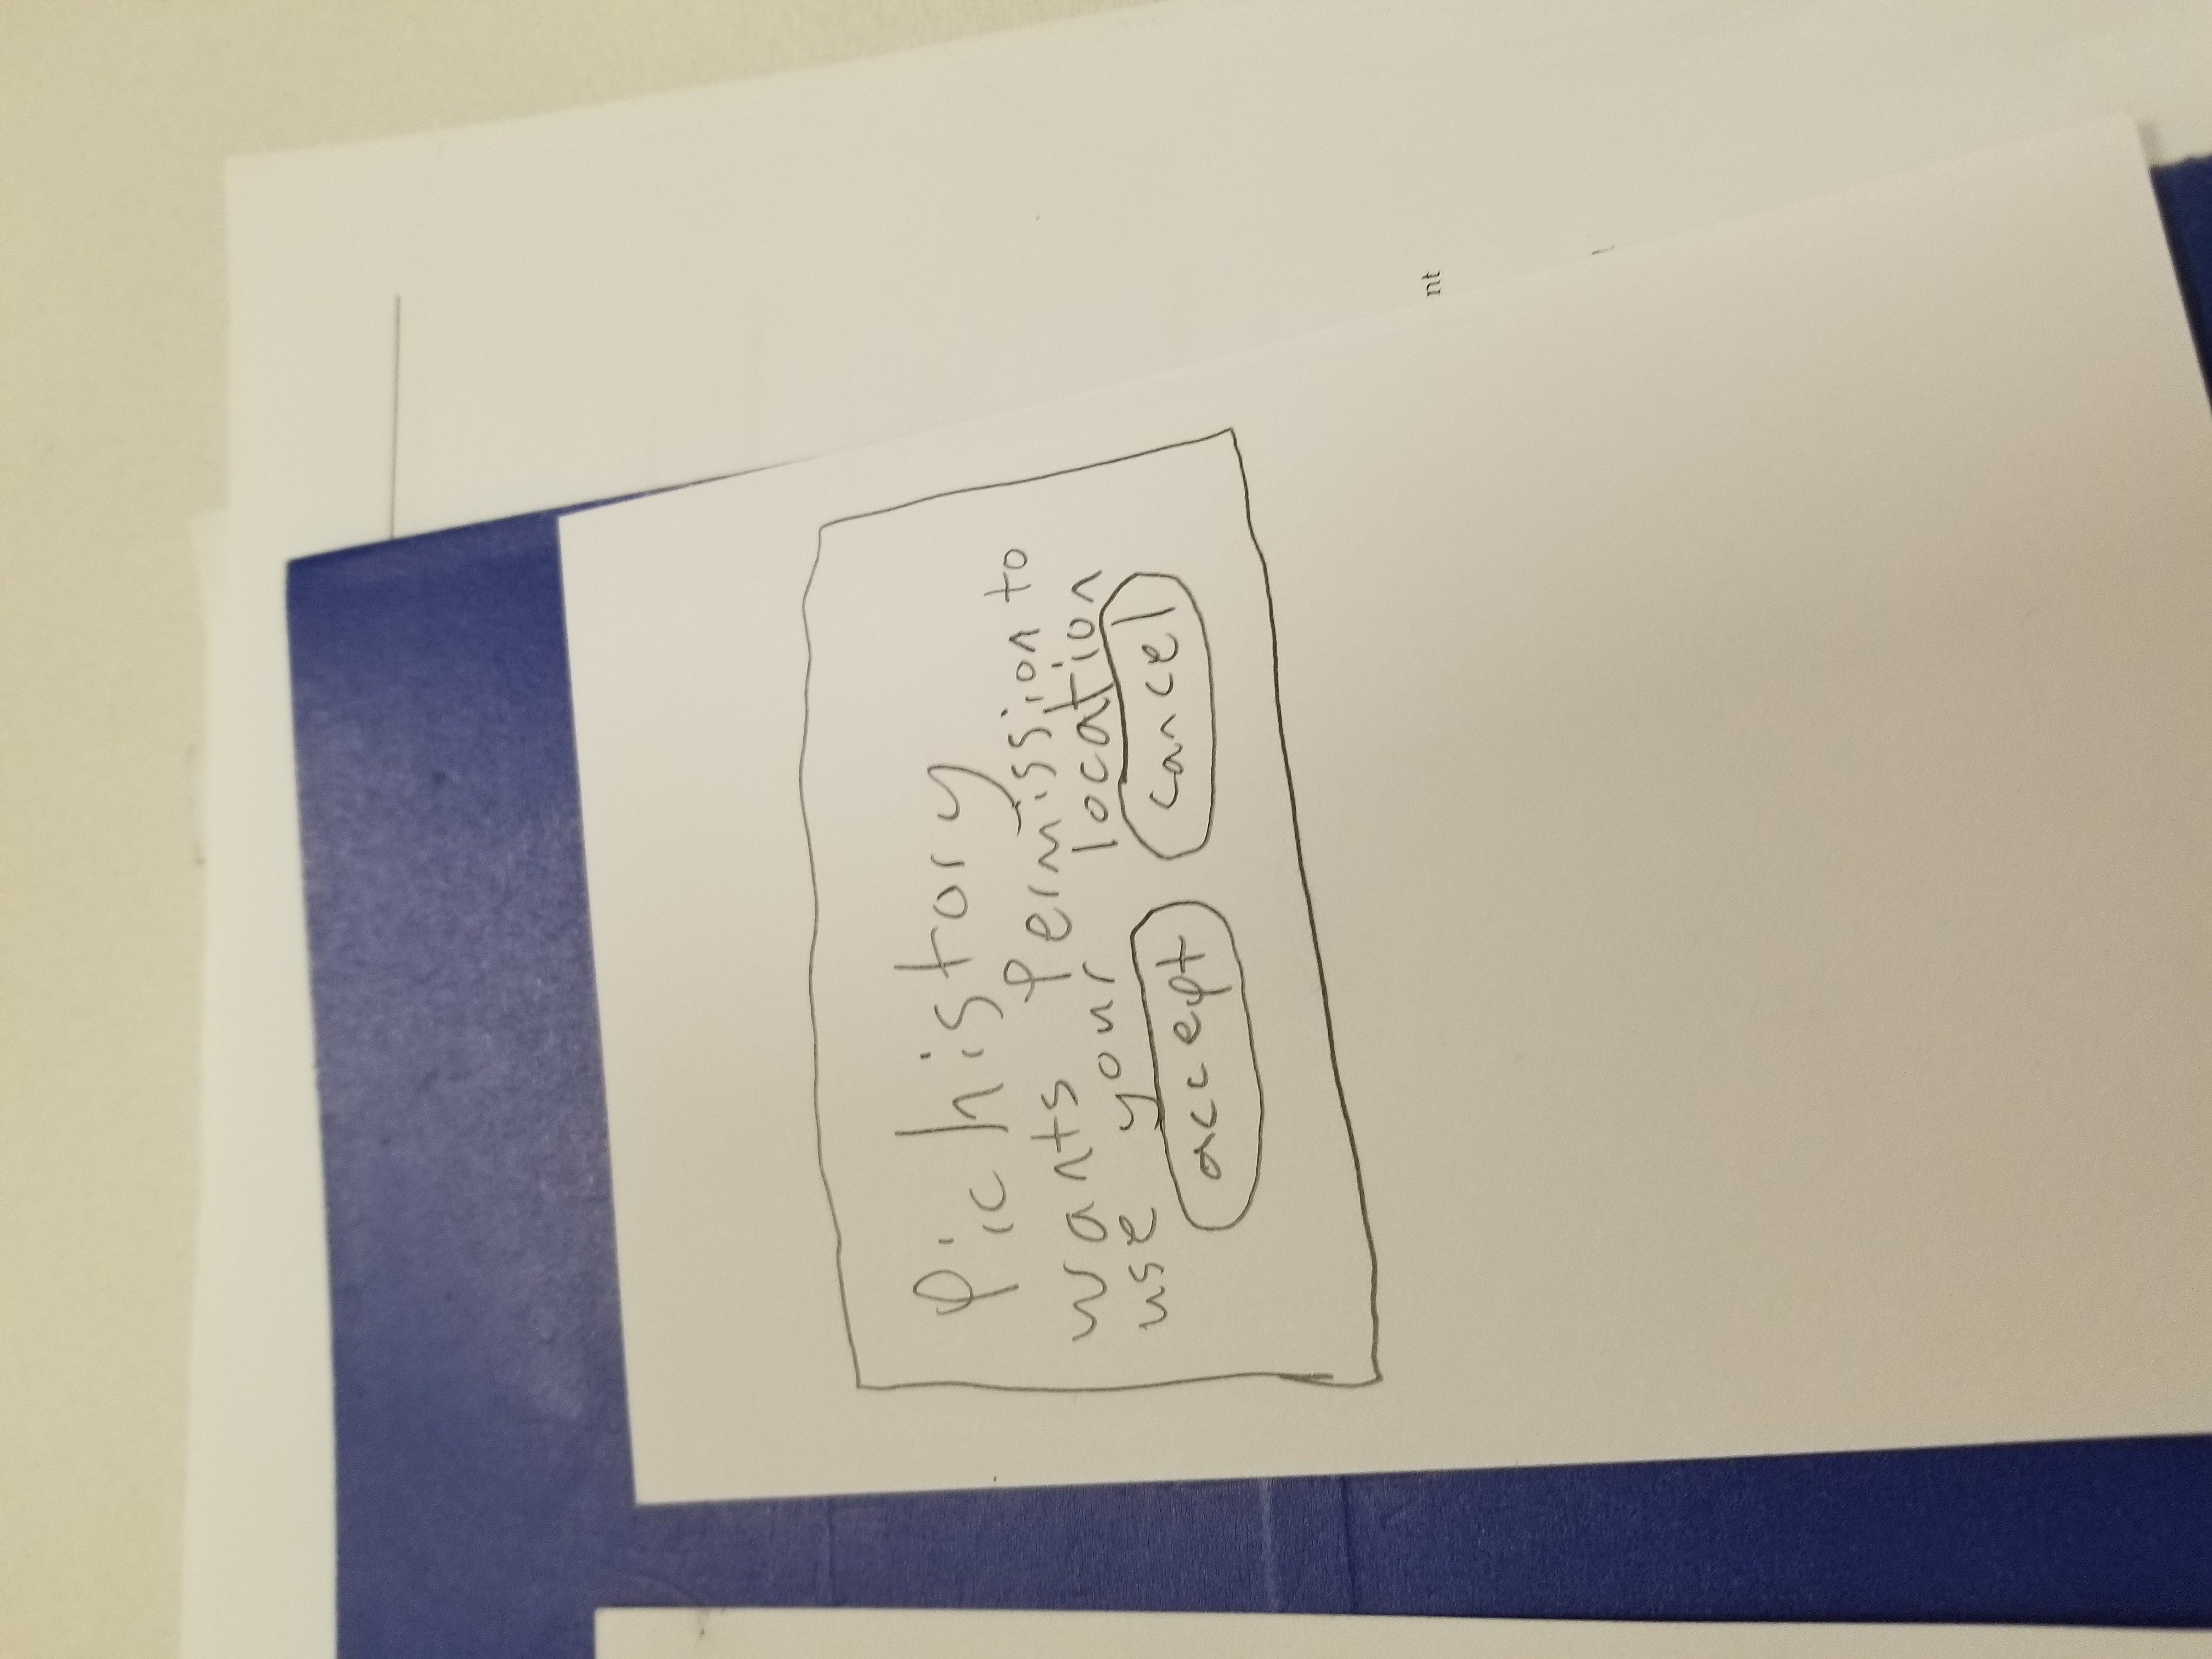 Pic history
wants Permission to
use your location
accept cancel
nt